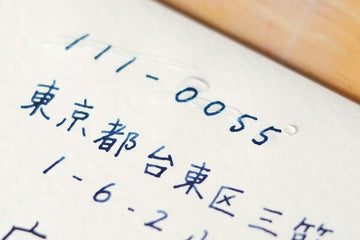 111-0055
東京都台東区三筋
1-6-2
広